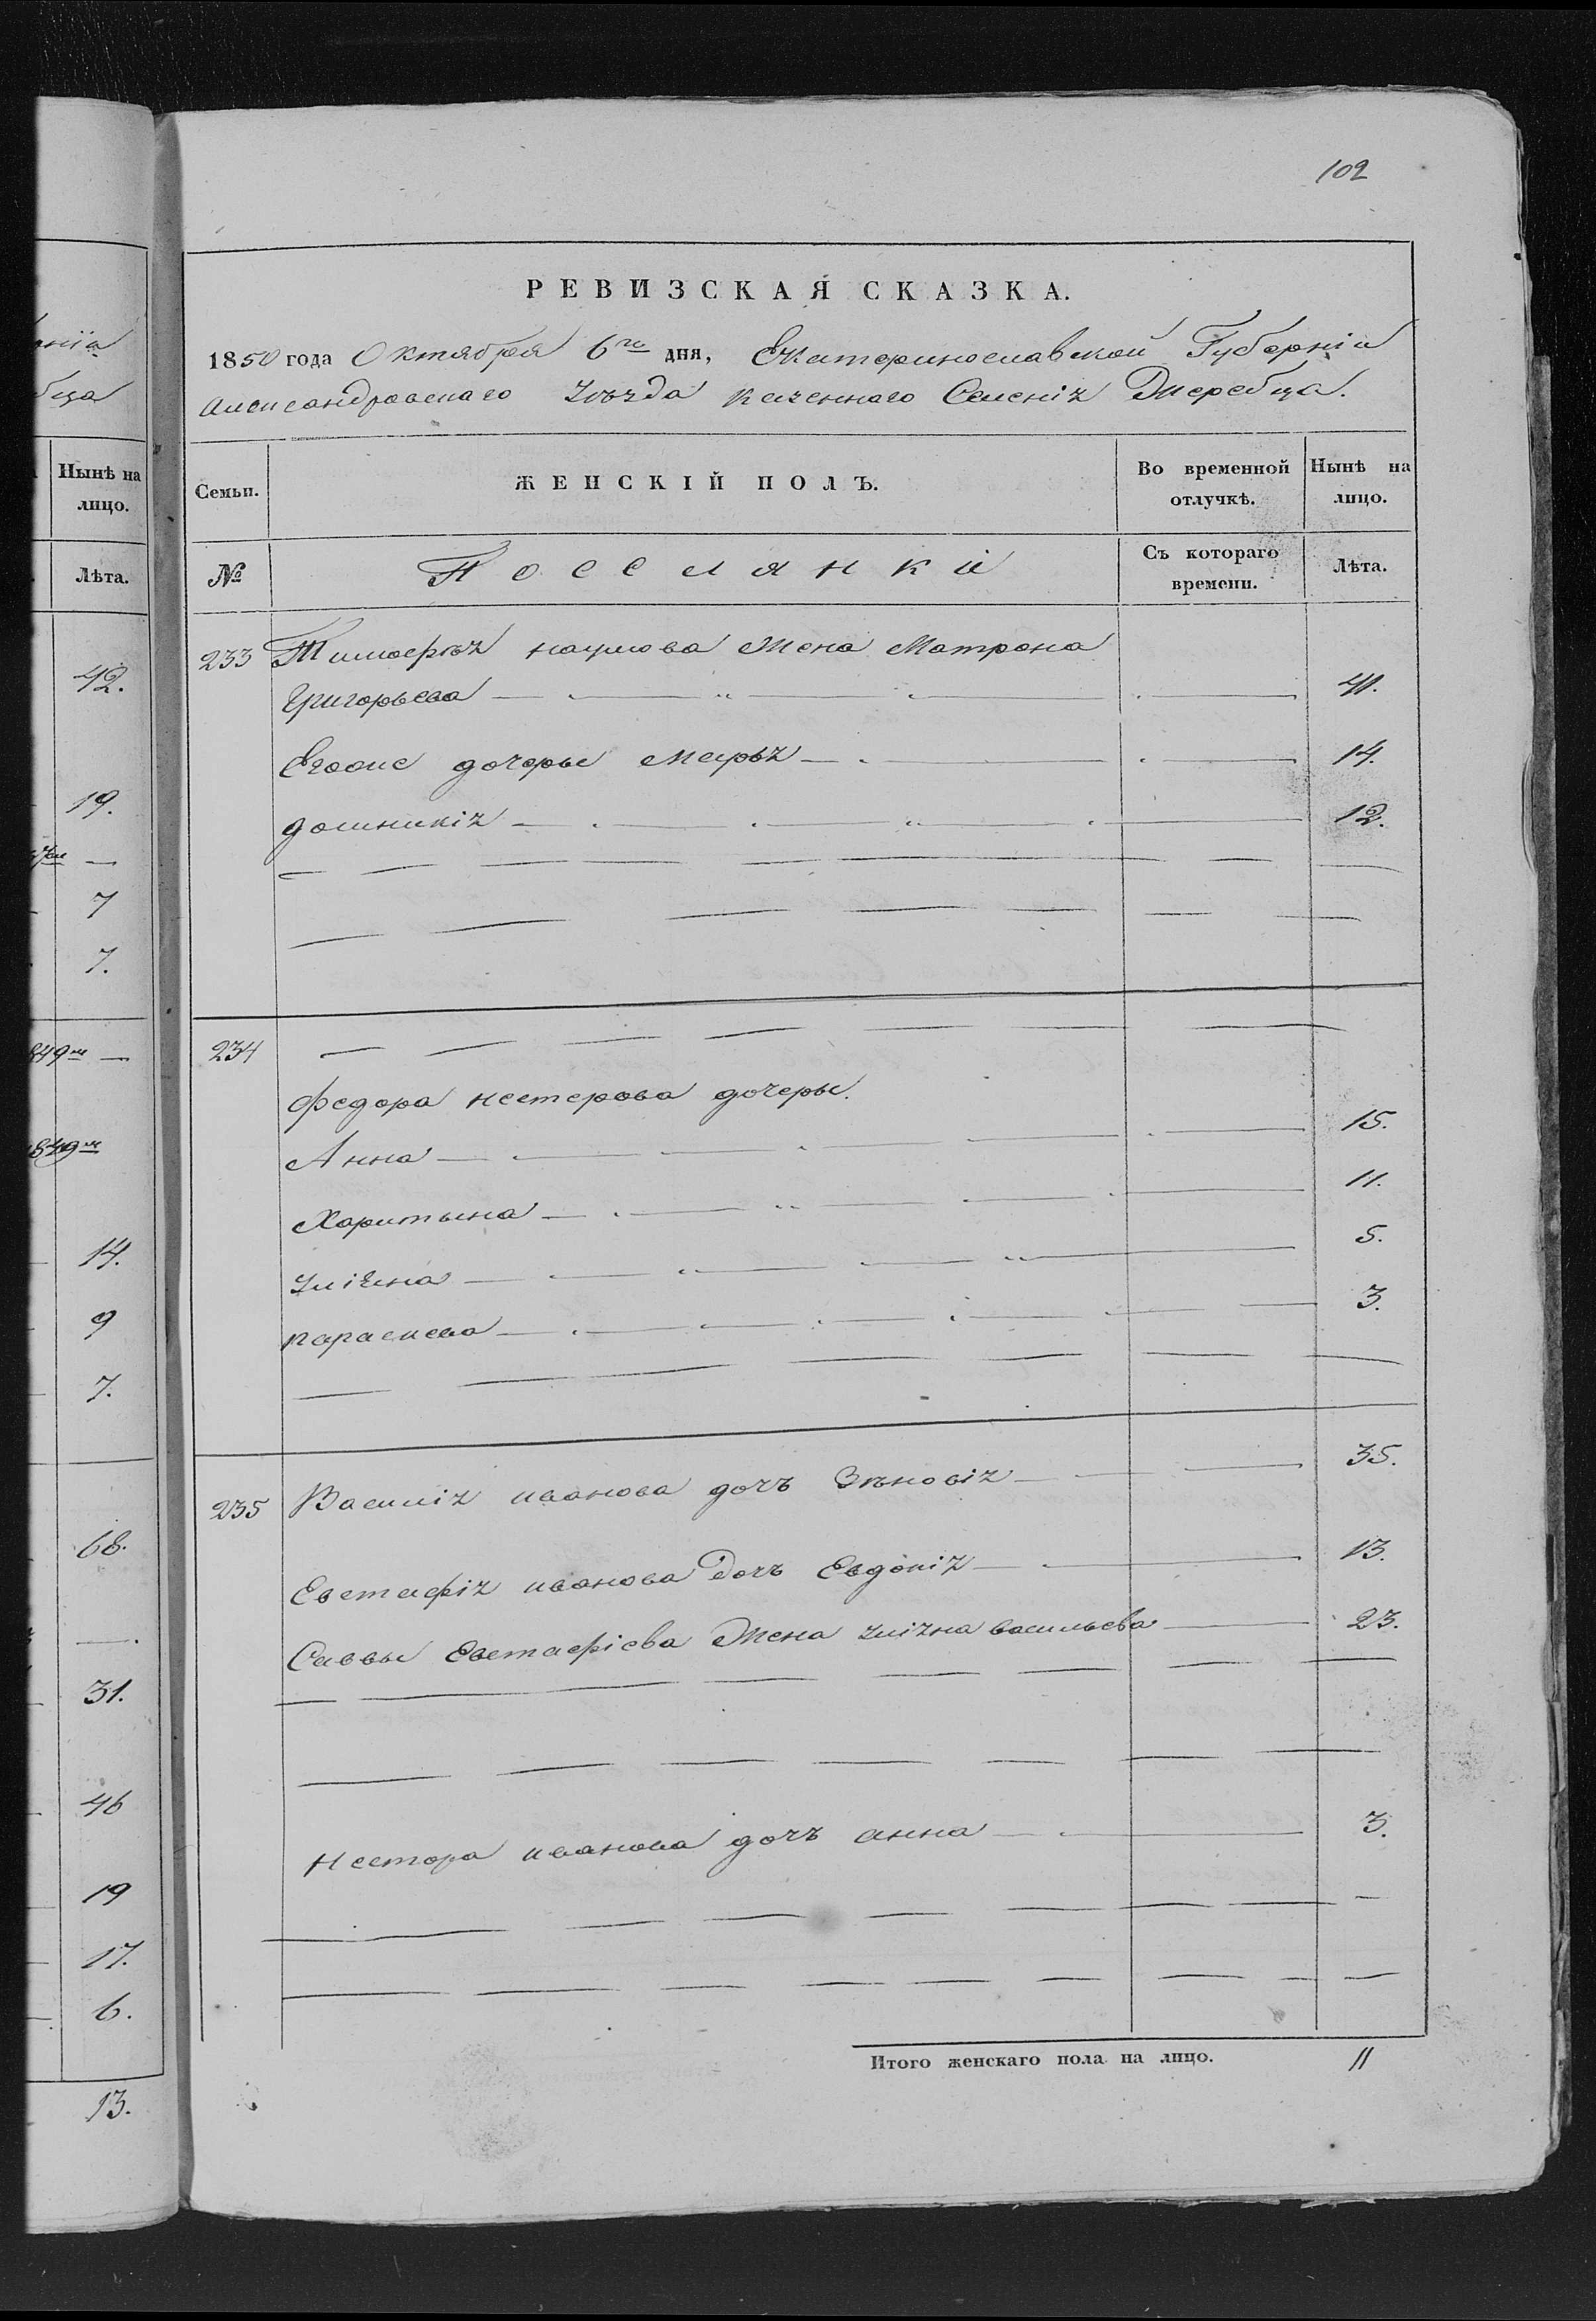 102
РЕВИЗСКАЯ СКАЗКА.
1850 года Октября 6го дня, Екатеринославской Губерніи
Александровскаго Уѣзда казеннаго Селенія Жеребца.
Семьи.
ЖЕНСКІЙ ПОЛЪ.
Во временной отлучкѣ.
Нынѣ на лицо.
№
Поселянки
Съ котораго времени.
Лѣта.
233 Тимофѣя наумова Жена Матрона
Григорьева 41.
Егоже дочеры Марья 14.
домникія 12.
234
Федора нестерова дочеры.
Анна 15.
Харитына 11.
Уліяна 5.
параскева 3.
235 Василія иванова дочъ Зѣновія 35.
Евстафія иванова дочъ Евдокія 13.
Саввы Евстафіева Жена уліяна васильева 23.
нестора иванова дочъ анна 3.
Итого женскаго пола на лицо. 11
Нынѣ на
лицо.
Лѣта.
42.
19.
7
7.
849
1849
14.
9
7.
68.
31.
46
19
17.
6.
13.